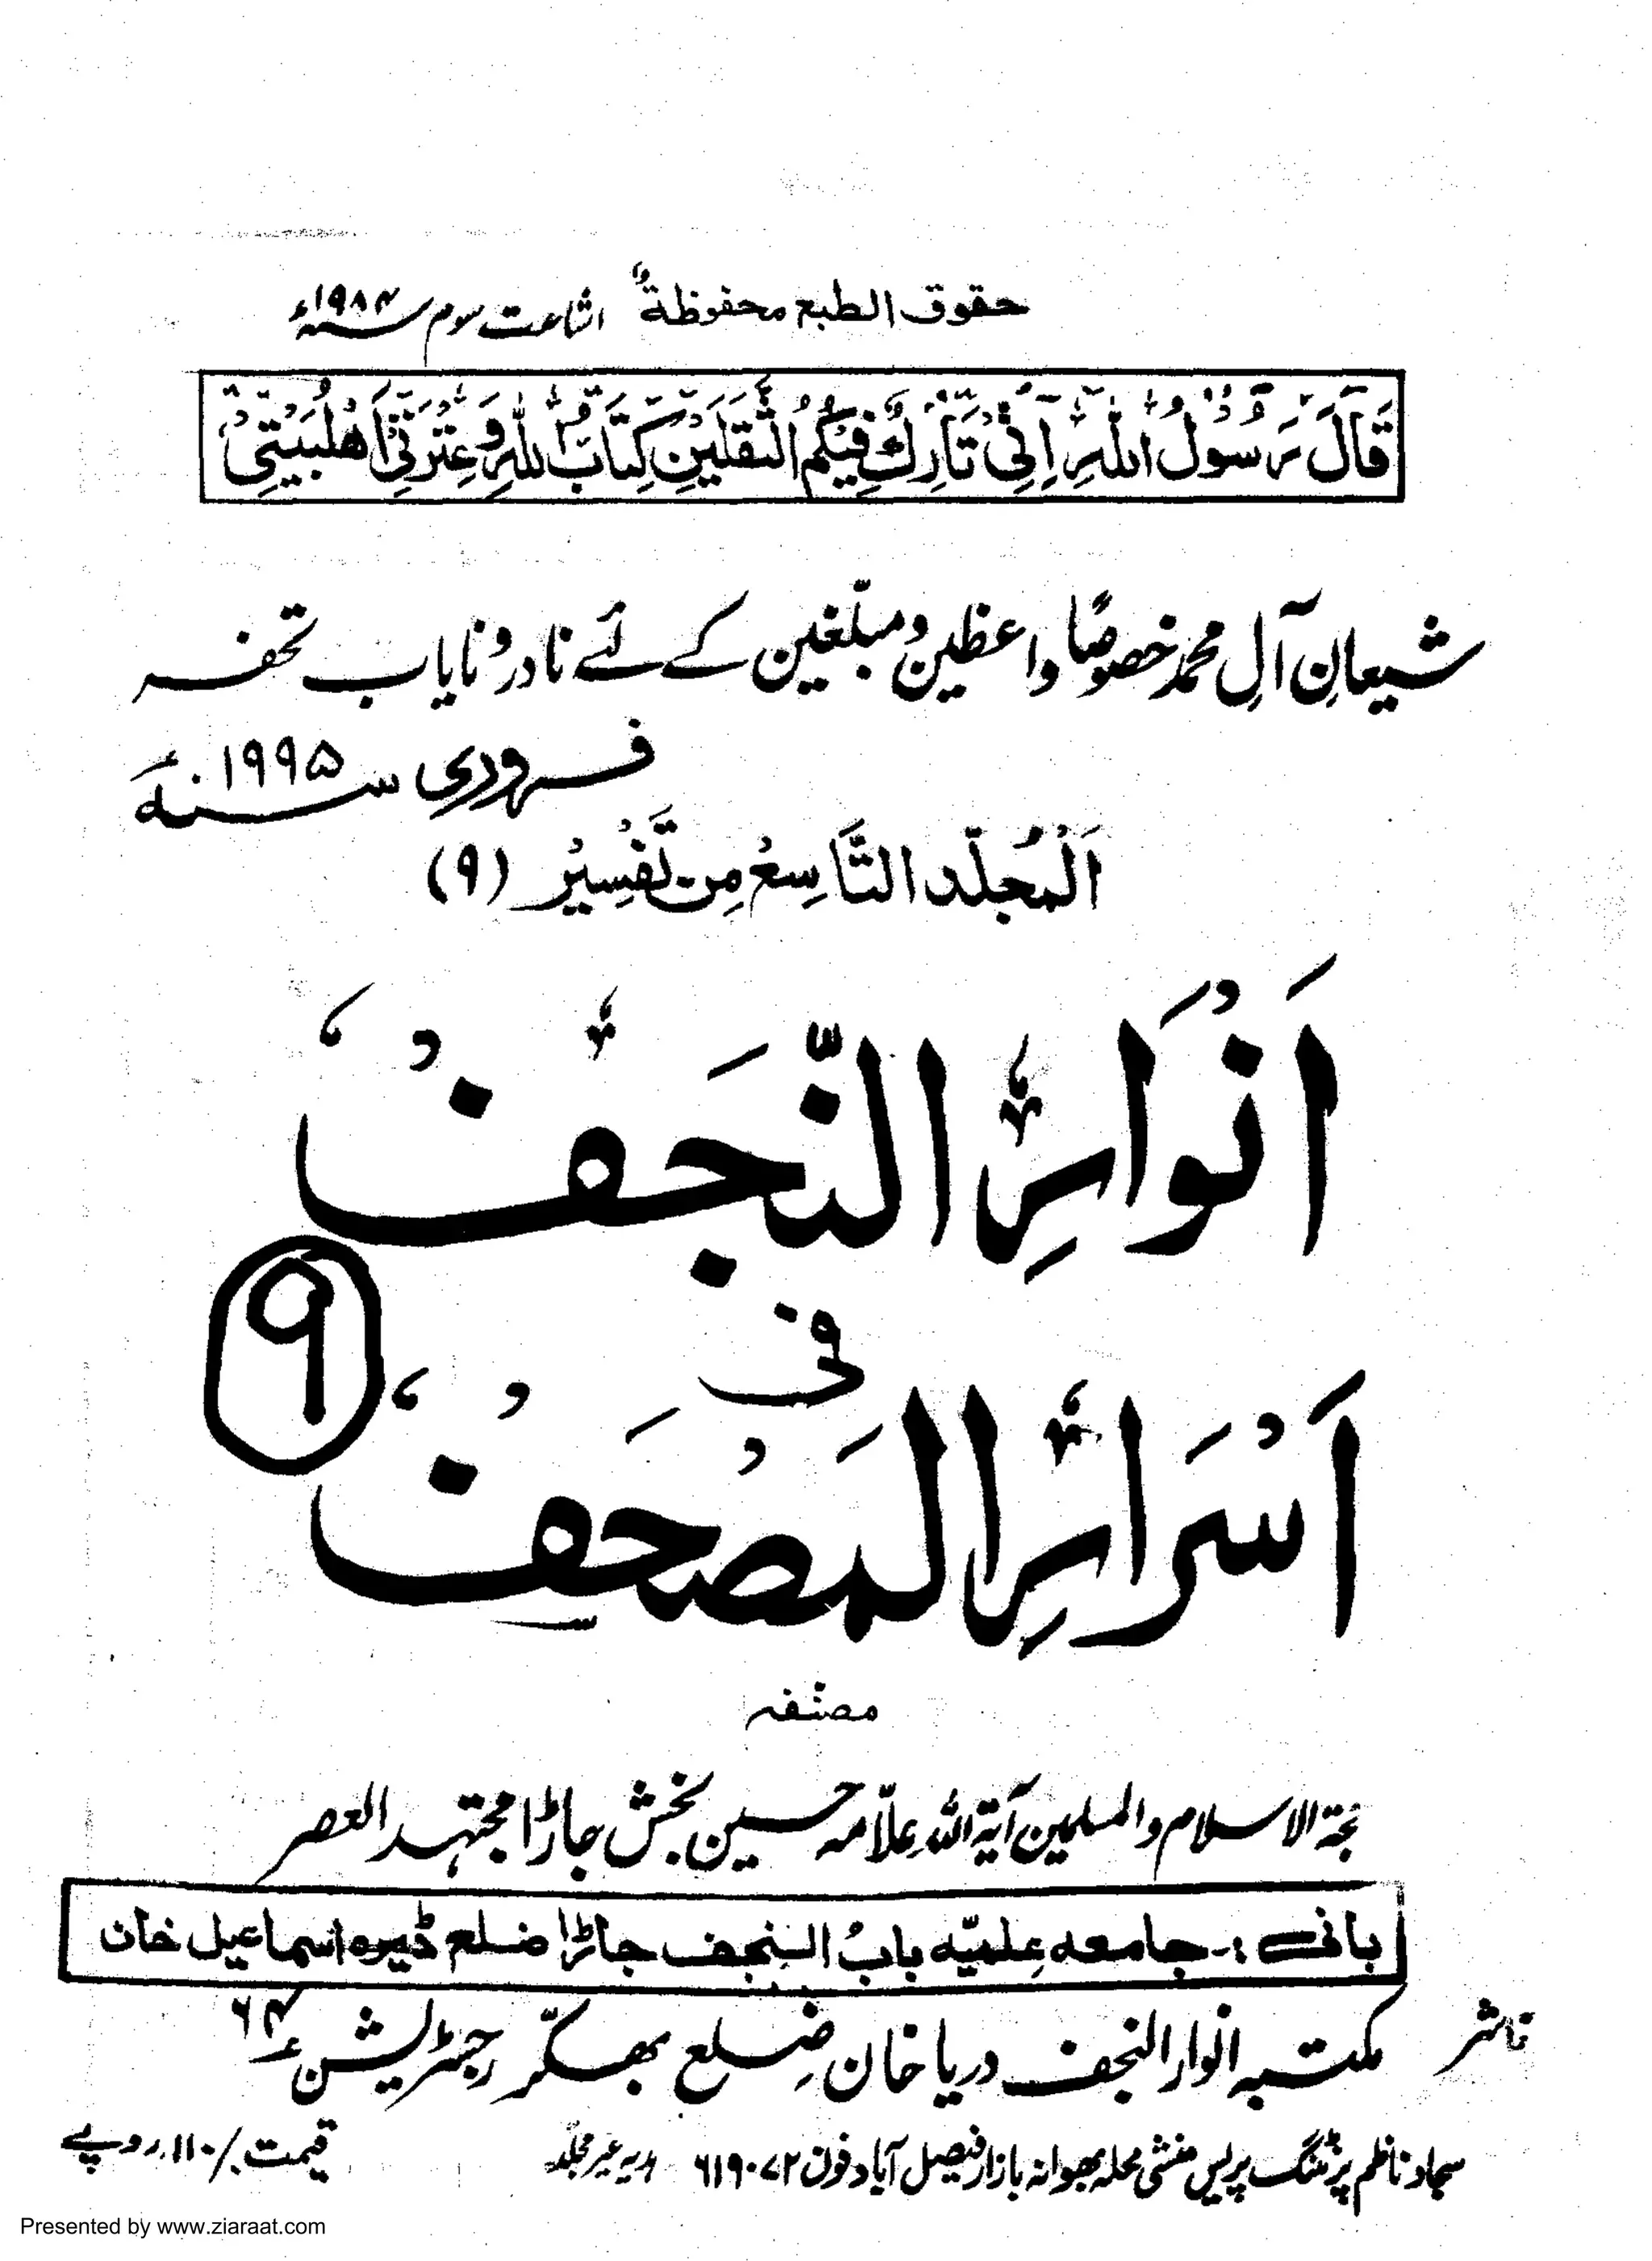 حقوق الطبع محفوظةٌ اشاعت سوم سنہ ۱۹۸۴ء
قَالَ رَسُوْلُ اللّٰهِ اِنِّيْ تَارِكٌ فِيْكُمُ الثَّقَلَيْنِ كِتَابَ اللّٰهِ وَعِتْرَتِيْ اَهْلَبَيْتِيْ
شیعانِ آلِ محمدؐ خصوصًا واعظین ومبلّغین کے لئے نادر ونایاب تحفہ
فروری سنہ ۱۹۹۵ء
اَلْمُجلّد التَّاسِعُ مِن تَفْسِيْرُ (۹)
اَنْوَارِ النَّجَفْ
فِی
۹
اَسْرَارِ الْمَصْحَفْ
مصنّفہ
حجۃ الاسلام والمسلمین آیۃ اللہ علّامہ حسین بخش جاڑا مجتہد العصر
بانی :۔ جامعہ عِلمیّہ بابُ النجف جاڑا ضلع ڈیرہ اسماعیل خان
ناشر مکتبہ انوار النجف دریا خان ضلع بھکّر رجسٹریشن ۶۴ء
سجاد ناظم پرنٹنگ پریس منشی محلہ بھوانہ بازار فیصل آباد فون ۶۱۹۰۷۲ ہدیہ غیر مجلد قیمت /۱۱۰ روپے
Presented by www.ziaraat.com